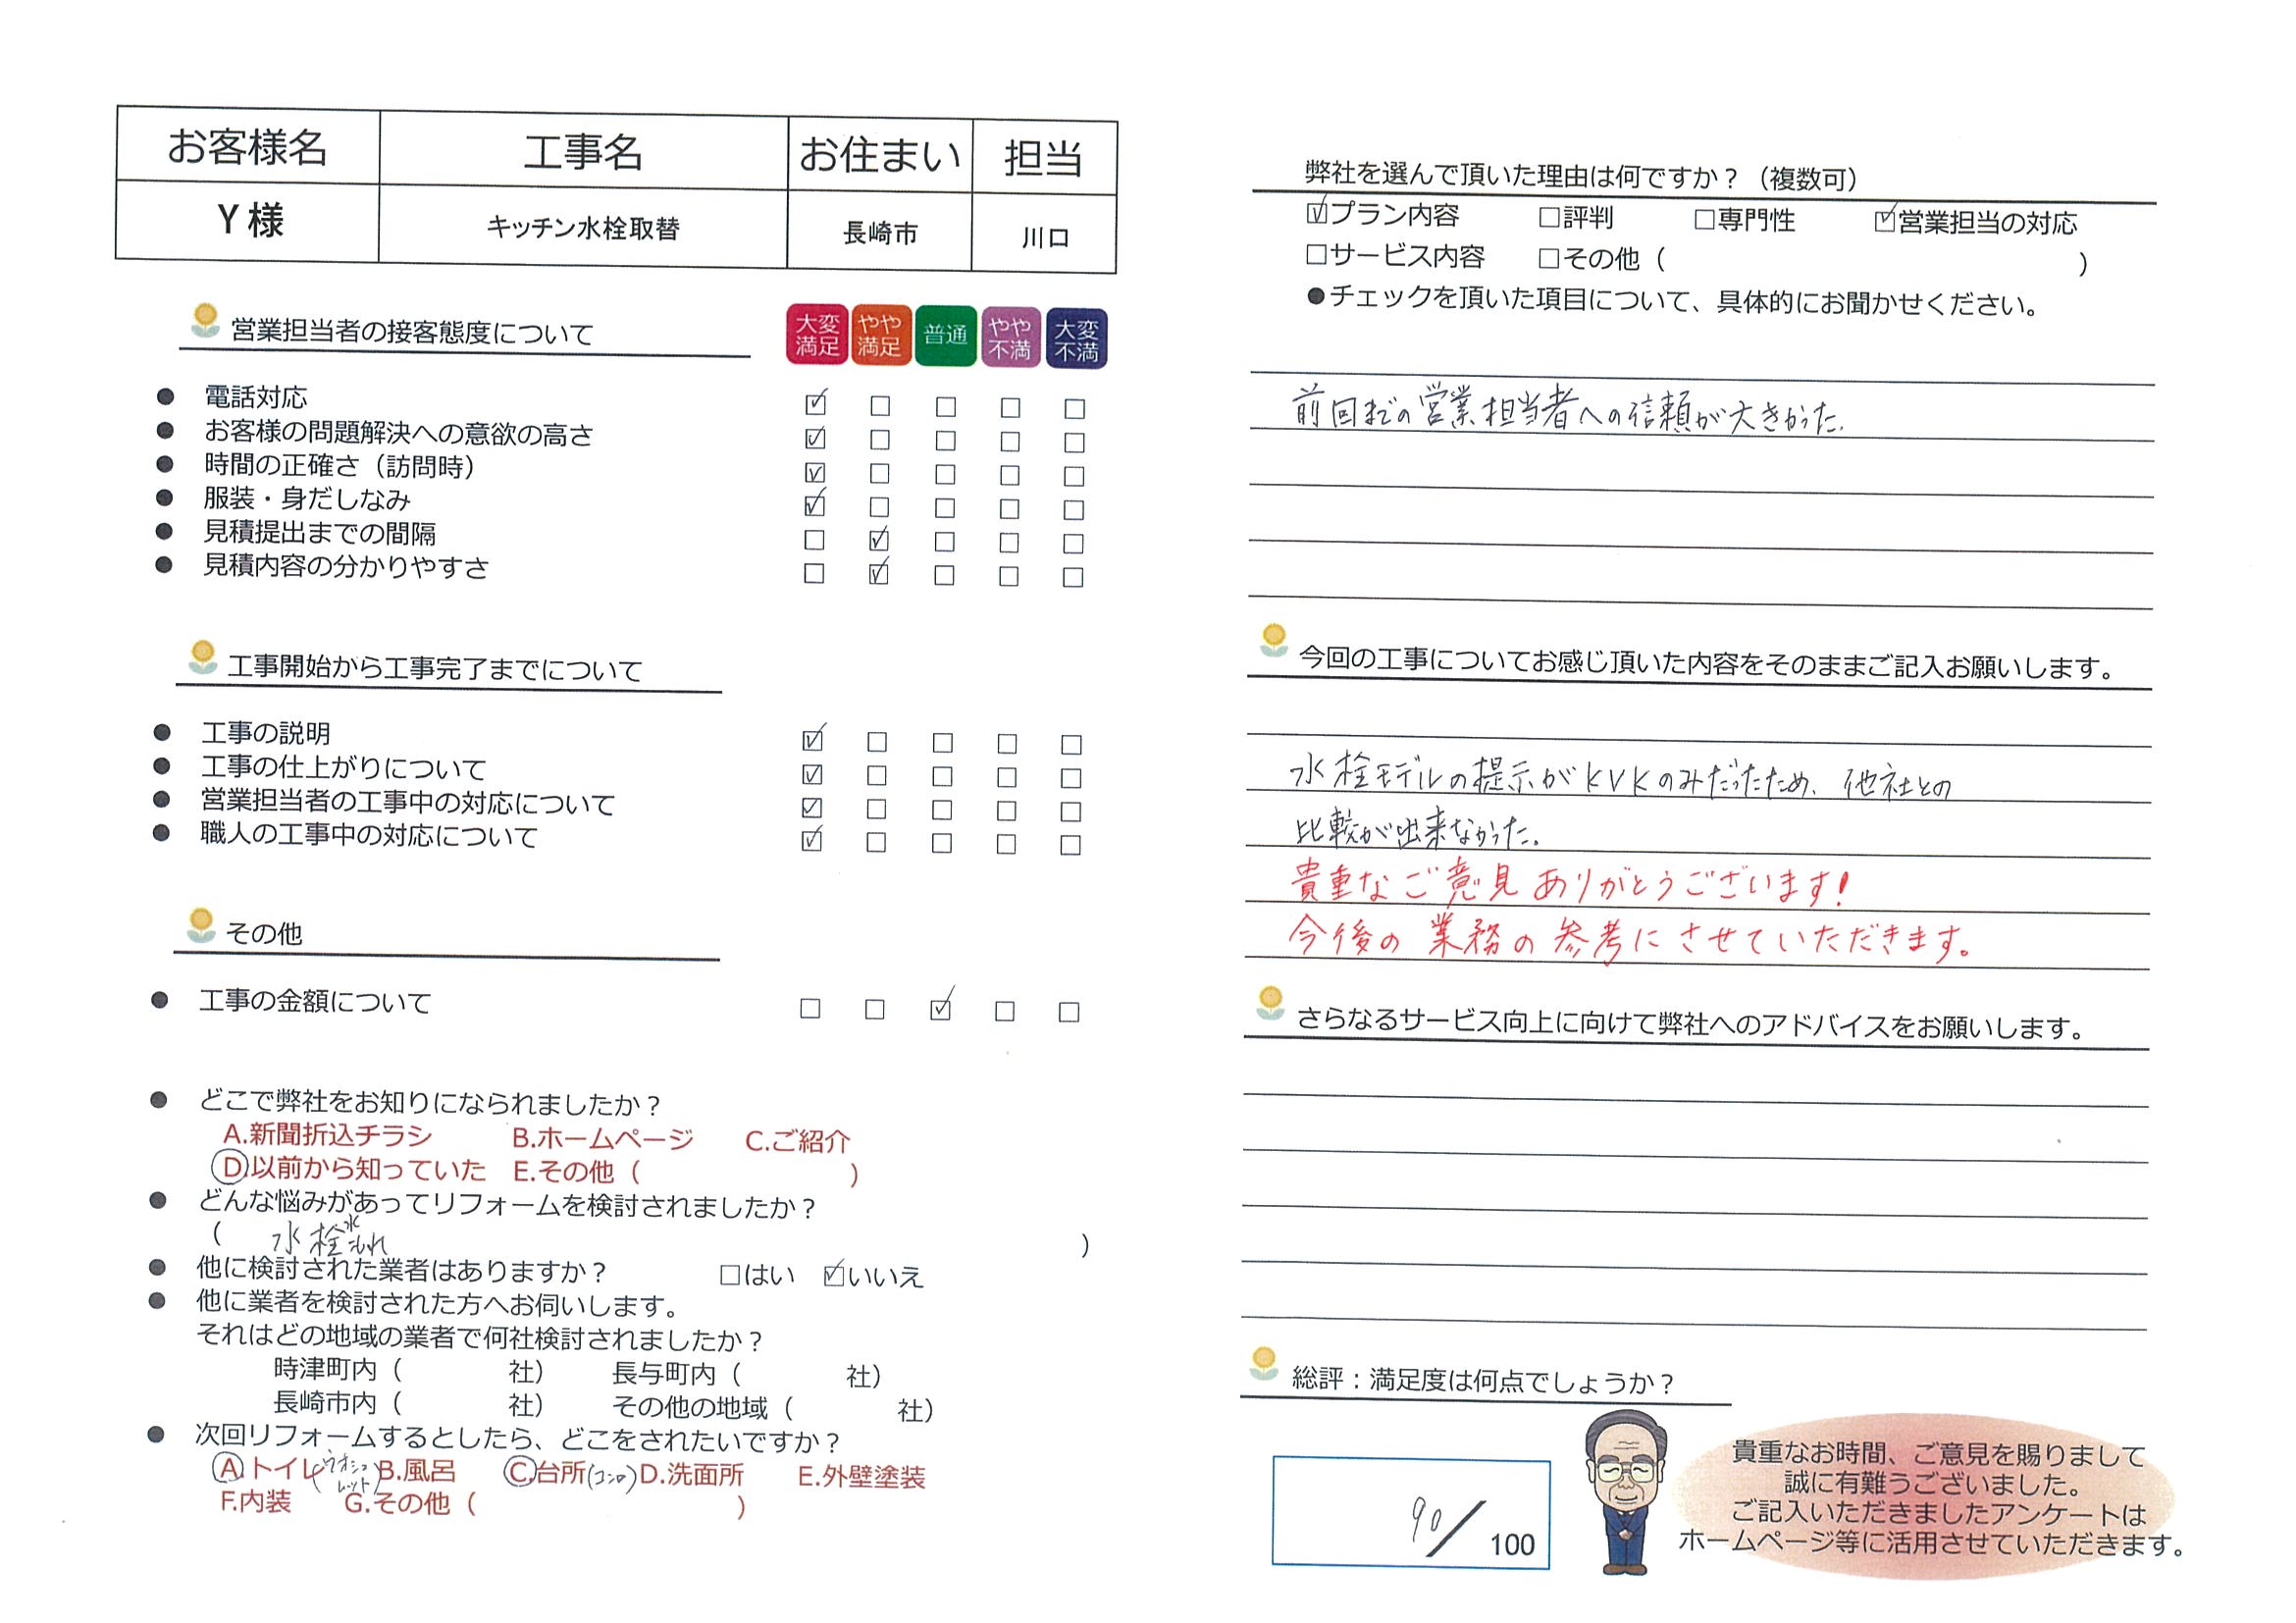 お客様名 工事名 お住まい 担当
Y様 キッチン水栓取替 長崎市 川口
営業担当者の接客態度について
大変満足 やや満足 普通 やや不満 大変不満
● 電話対応 ☑ □ □ □ □
● お客様の問題解決への意欲の高さ ☑ □ □ □ □
● 時間の正確さ（訪問時） ☑ □ □ □ □
● 服装・身だしなみ ☑ □ □ □ □
● 見積提出までの間隔 □ ☑ □ □ □
● 見積内容の分かりやすさ □ ☑ □ □ □
工事開始から工事完了までについて
● 工事の説明 ☑ □ □ □ □
● 工事の仕上がりについて ☑ □ □ □ □
● 営業担当者の工事中の対応について ☑ □ □ □ □
● 職人の工事中の対応について ☑ □ □ □ □
その他
● 工事の金額について □ □ ☑ □ □
● どこで弊社をお知りになられましたか？
A.新聞折込チラシ B.ホームページ C.ご紹介
D.以前から知っていた E.その他（ ）
● どんな悩みがあってリフォームを検討されましたか？
（ 水栓水もれ ）
● 他に検討された業者はありますか？ □はい ☑いいえ
● 他に業者を検討された方へお伺いします。
それはどの地域の業者で何社検討されましたか？
時津町内（ 社） 長与町内（ 社）
長崎市内（ 社） その他の地域（ 社）
● 次回リフォームするとしたら、どこをされたいですか？
A.トイレ(ウオシュレット) B.風呂 C.台所(コンロ) D.洗面所 E.外壁塗装
F.内装 G.その他（ ）
弊社を選んで頂いた理由は何ですか？（複数可）
☑プラン内容 □評判 □専門性 ☑営業担当の対応
□サービス内容 □その他（ ）
●チェックを頂いた項目について、具体的にお聞かせください。
前回までの営業担当者への信頼が大きかった.
今回の工事についてお感じ頂いた内容をそのままご記入お願いします。
水栓モデルの提示がKVKのみだったため、他社との
比較が出来なかった。
貴重なご意見ありがとうございます!
今後の業務の参考にさせていただきます。
さらなるサービス向上に向けて弊社へのアドバイスをお願いします。
総評：満足度は何点でしょうか？
90/100
貴重なお時間、ご意見を賜りまして
誠に有難うございました。
ご記入いただきましたアンケートは
ホームページ等に活用させていただきます。